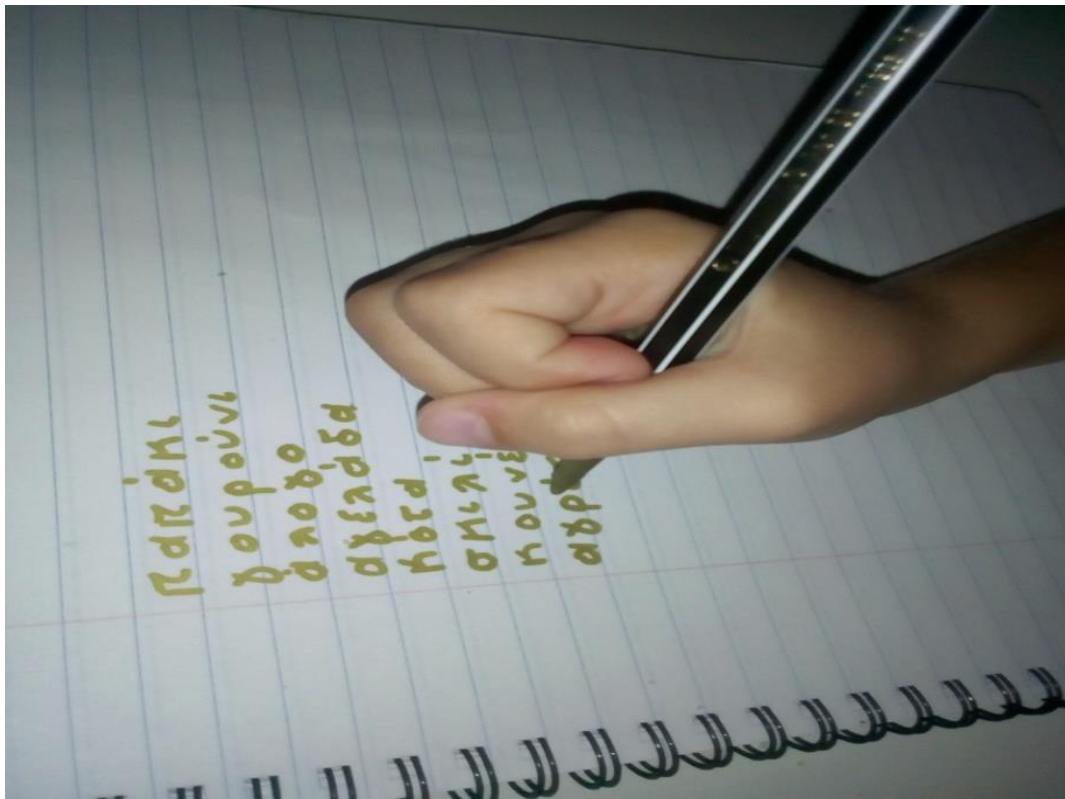 παπάκι
γουρούνι
άλογο
αγελάδα
κότα
σκιλί
κουνέ
αγρ